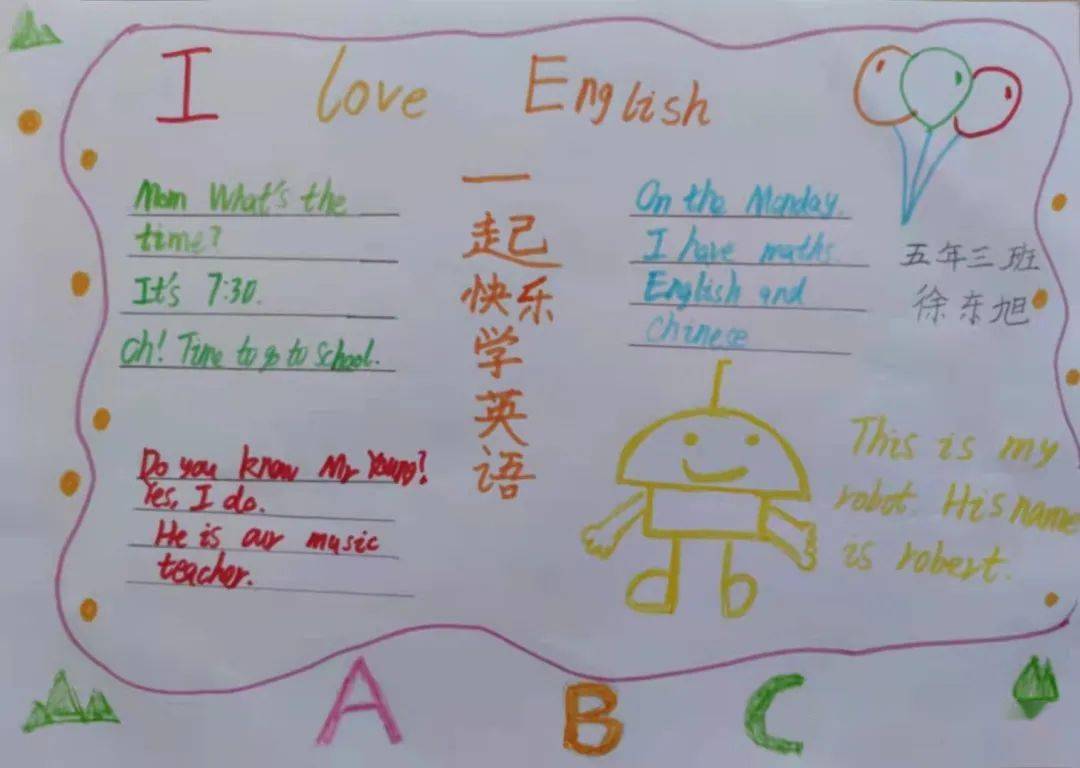 I love English
Mom What's the
time?
It's 7:30.
Oh! Time to go to school.
Do you know Mr Young?
Yes, I do.
He is our music
teacher.
一
起
快乐
学
英
语
On the Monday.
I have maths
English and
Chinese
五年三班
徐东旭
This is my
robot. His name
is robert.
A B C